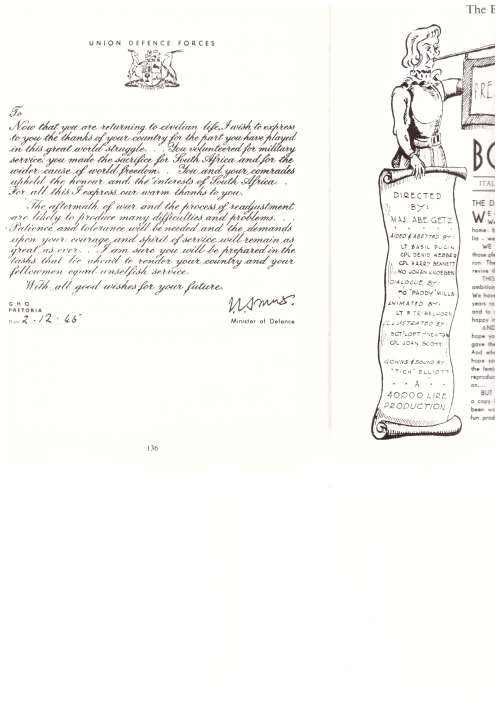 UNION DEFENCE FORCES
To
Now that you are returning to civilian life, I wish to express
to you the thanks of your country for the part you have played
in this great world struggle. . . You volunteered for military
service, you made the sacrifice for South Africa and for the
wider cause of world freedom. . You and your comrades
upheld the honour and the interests of South Africa. .
For all this I express our warm thanks to you.
The aftermath of war and the process of readjustment
are likely to produce many difficulties and problems. . .
Patience and tolerance will be needed and the demands
upon your courage and spirit of service will remain as
great as ever. . . I am sure you will be prepared in the
tasks that lie ahead to render your country and your
fellowmen equal unselfish service.
With all good wishes for your future.
G H Q
PRETORIA
2 · 12 · 45
Minister of Defence
136
The
DIRECTED
BY:
MAJ. ABE GETZ
AIDED & ABETTED BY:
LT BASIL
CPL DENIS
CPL HARRY BENNETT
JOHAN
DIALOGUE BY:
"PADDY" MILLS
ANIMATED BY:
LT
ILLUSTRATED BY:
SGT "LOFTY" NEWTON
CPL JOHN SCOTT
& SOUND BY:
"TICH" ELLIOTT
A
40,000 LIRE
PRODUCTION
PRE
BO
ITAL
THE D
WE
home
lia - we
WE
those
ron. The
revive
THIS
ambition
We have
years
and to
happy
AND
hope
gave the
And
hope
the
reproduc
on....
BUT
a copy
been
fun prod